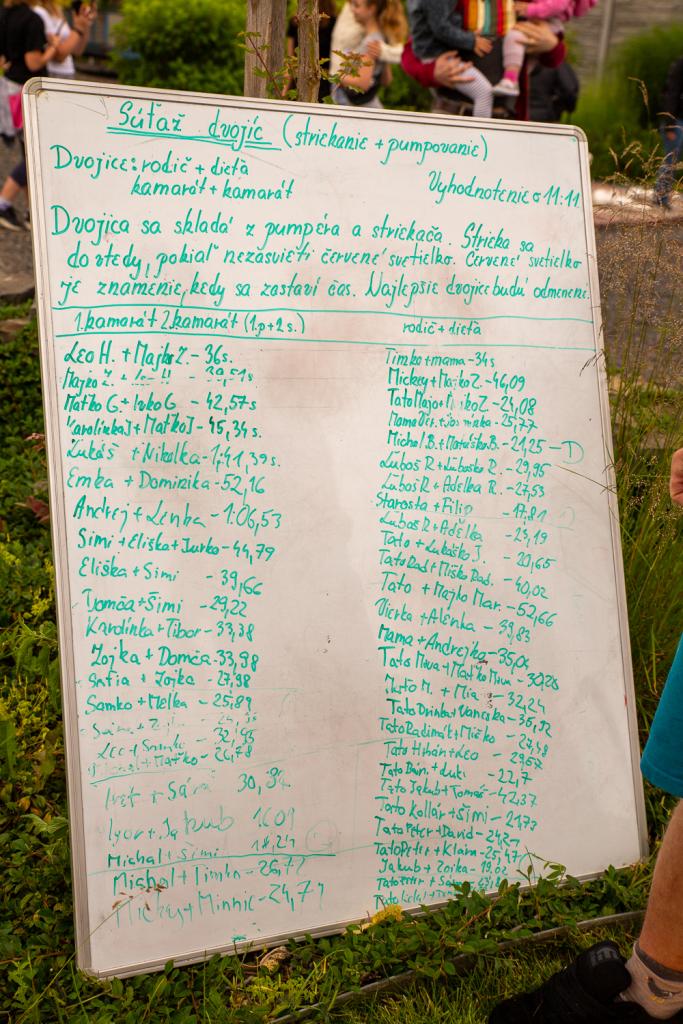 Súťaž dvojíc (striekanie + pumpovanie)
Dvojice: rodič + dieťa
kamarát + kamarát
Vyhodnotenie o 11:11
Dvojica sa skladá z pumpéra a striekača. Strieka sa
dovtedy, pokiaľ nezasvieti červené svetielko. Červené svetielko
je znamenie, kedy sa zastaví čas. Najlepšie dvojice budú odmenené.
1.kamarát 2.kamarát (1.p+2s.)
Leo H. + Majko Z. - 36s.
Majko Z.
Maťko G. + Ivko G - 42,57s
Karolínka J + Maťko J - 45,34s.
Lukáš + Nikolka - 1:41,39s.
Emka + Dominika - 52,16
Andrej + Lenka - 1:06,53
Simi + Eliška + Jurko - 44,79
Eliška + Simi - 39,66
Domča + Simi - 29,22
Karolínka + Tibor - 33,38
Zojka + Domča - 33,98
Sofia + Zojka - 27,98
Samko + Melka - 25,89
Leo + Samko - 32,45
+ Maťko - 26,78
+ Sára 30,
Igor + Jakub
Michal + Simi 18,24
Michal + Timko - 26,72
Mickey + Minnie - 24,71
rodič + dieťa
Timko + mama - 34s
Mickey + Majko Z. - 46,09
Tato Majo + Majko Z. - 24,08
Mama - 25,77
Michal B. + Matúško B. - 21,25 - D
Ľuboš R + Ľuboško R. - 29,95
Ľuboš R + Adelka R. - 27,53
Starosta + Filip - 17,81
Ľuboš R + Adelka - 23,19
Tato + Lukáško J. - 20,65
Tato Rad + Miško Rad. - 40,02
Tato + Majko Mar. - 52,66
Vierka + Alenka - 39,83
Mama + Andrejka - 35,04
Tato + Maťko - 30,28
M. + Mia - 32,24
Tato Drinka + Vaneska - 36,92
Tato Radimák + Mičko - 27,48
Tato + Leo - 29,67
Tato + Luki - 22,7
Tato Jakub + Tomáš - 42,37
Tato Kollár + Simi - 21,73
Tato Peter + David - 24,27
Tato Peter + Klára - 25,47
Jakub + Zojka - 19,02
Tato Peter +
Tato